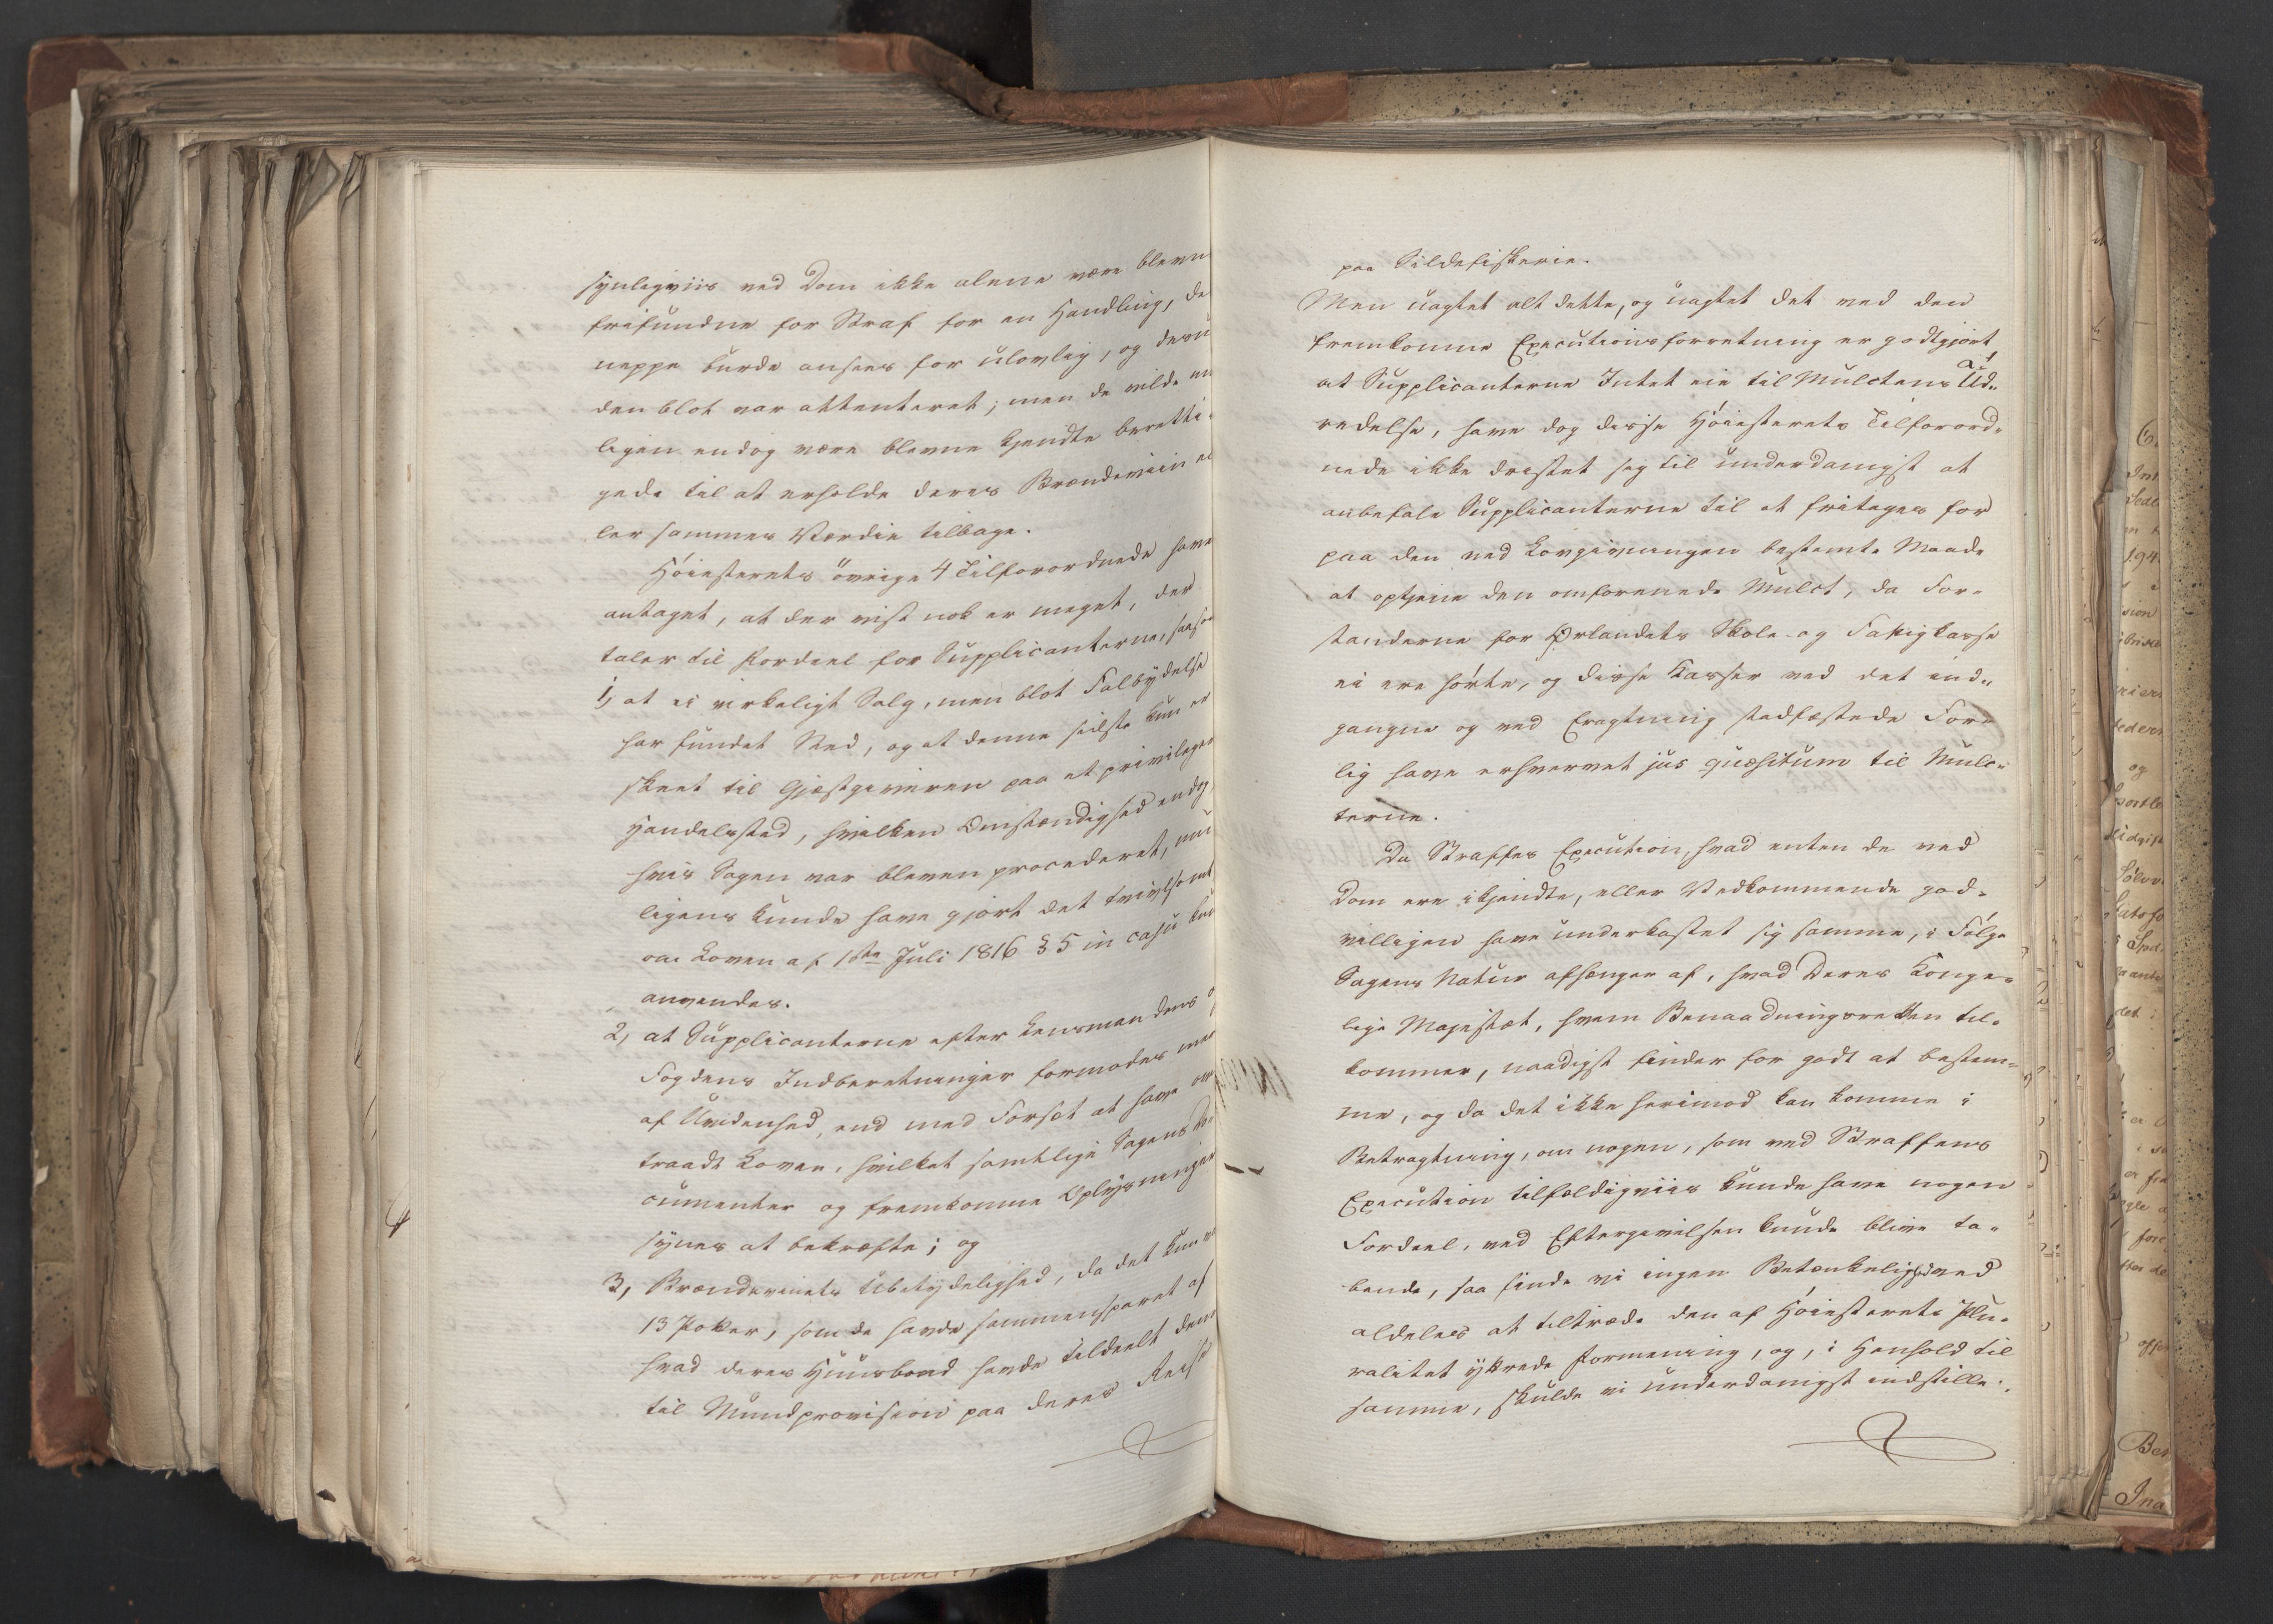 synligviis ved Dom ikke alene være blevne
frifundne for Straf for en Handling, de
neppe burde ansees for ulovlig, og desu
den blot var attenteret; men de vilde en
ligen endog være blevne kjendte beretti-
gede til at erholde deres Brændeviin el
ler sammes Værdie tilbage.
Höiesterets övrige 4 Tilforordnede have
antaget, at der vist nok er meget, der
taler til Fordeel for Supplicanterne, saaso
1, at ei virkeligt Salg, men blot Falbydelse
har fundet Sted, og at denne sidste kun er
skeet til Gjæstgiveren paa et privileger
Handelssted, hvilken Omstændighed endog
hvis Sagen var bleven procederet, mu
ligens kunde have gjort det tvivlsomt
om Loven af 1ste Juli 1816 § 5 in casu kun
anvendes.
2, at Supplicanterne efter Lensmandens o
Fogdens Indberetninger formodes mee
af Uvidenhed, end med Forsæt at have ove
traadt Loven, hvilket samtlige Sagens Do
cumenter og fremkomne Oplysninger
synes at bekræfte; og
3, Brændeviinets Ubetydelighed, da det kun va
13 Potter, som de havde sammensparet af
hvad deres Huusbond havde tildeelt dem
til Mundprovision paa deres Reise
paa Sildefiskerie.
Men uagtet alt dette, og uagtet det ved den
fremkomne Executionsforretning er godtgjort
at Supplicanterne Intet eie til Mulctens Ud-
redelse, have dog disse Höiesterets Tilforord-
nede ikke dristet sig til underdanigst at
anbefale Supplicanterne til at fritages for
paa den ved Lovgivningen bestemte Maade
at optjene den omforenede Mulct, da For-
standerne for Ørlandets Skole- og Fattigkasse
ei ere hörte, og disse Kasser ved det ind-
gangne og ved Eragtning stadfæstede For-
lig have erhvervet jus quæsitum til Mulc-
terne.
Da Straffes Execution, hvad enten de ved
Dom ere ikjendte, eller Vedkommende god-
villigen have underkastet sig samme, i Fölge
Sagens Natur afhænger af, hvad Deres Konge-
lige Majestæt, hvem Benaadningsretten til-
kommer, naadigst finder for godt at bestem-
me, og da det ikke herimod kan komme i
Betragtning, om nogen, som ved Straffens
Execution tilfældigviis kunde have nogen
Fordeel, ved Eftergivelsen kunde blive ta-
bende, saa finde vi ingen Betænkelighed ved
aldeles at tiltræde den af Höiesterets Plu-
ralitet yttrede Formening, og, i Henhold til
samme, skulde vi underdanigst indstille: